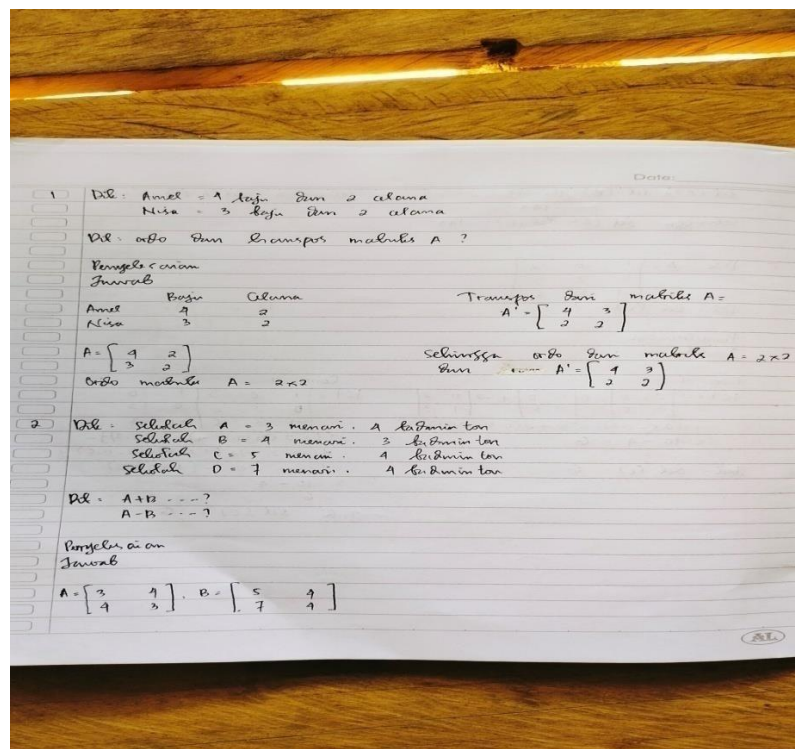 Date:
1 Dik: Amel = 4 baju dan 2 celana
Nisa = 3 baju dan 2 celana
Dit: ordo dan transpos matriks A ?
Penyelesaian
Jawab
Baju Celana
Amel 4 2
Nisa 3 2
A = [ 4 2
3 2 ]
Ordo matriks A = 2x2
Transpos dari matriks A =
A' = [ 4 3
2 2 ]
sehingga ordo dan matriks A = 2x2
dan A' = [ 4 3
2 2 ]
2 Dik: sekolah A = 3 menari. 4 badminton
Sekolah B = 4 menari. 3 badminton
Sekolah C = 5 menari. 4 badminton
Sekolah D = 7 menari. 4 badminton
Dit = A+B ---?
A-B ---?
Penyelesaian
Jawab
A = [ 3 4
4 3 ] . B = [ 5 4
7 4 ]
AL